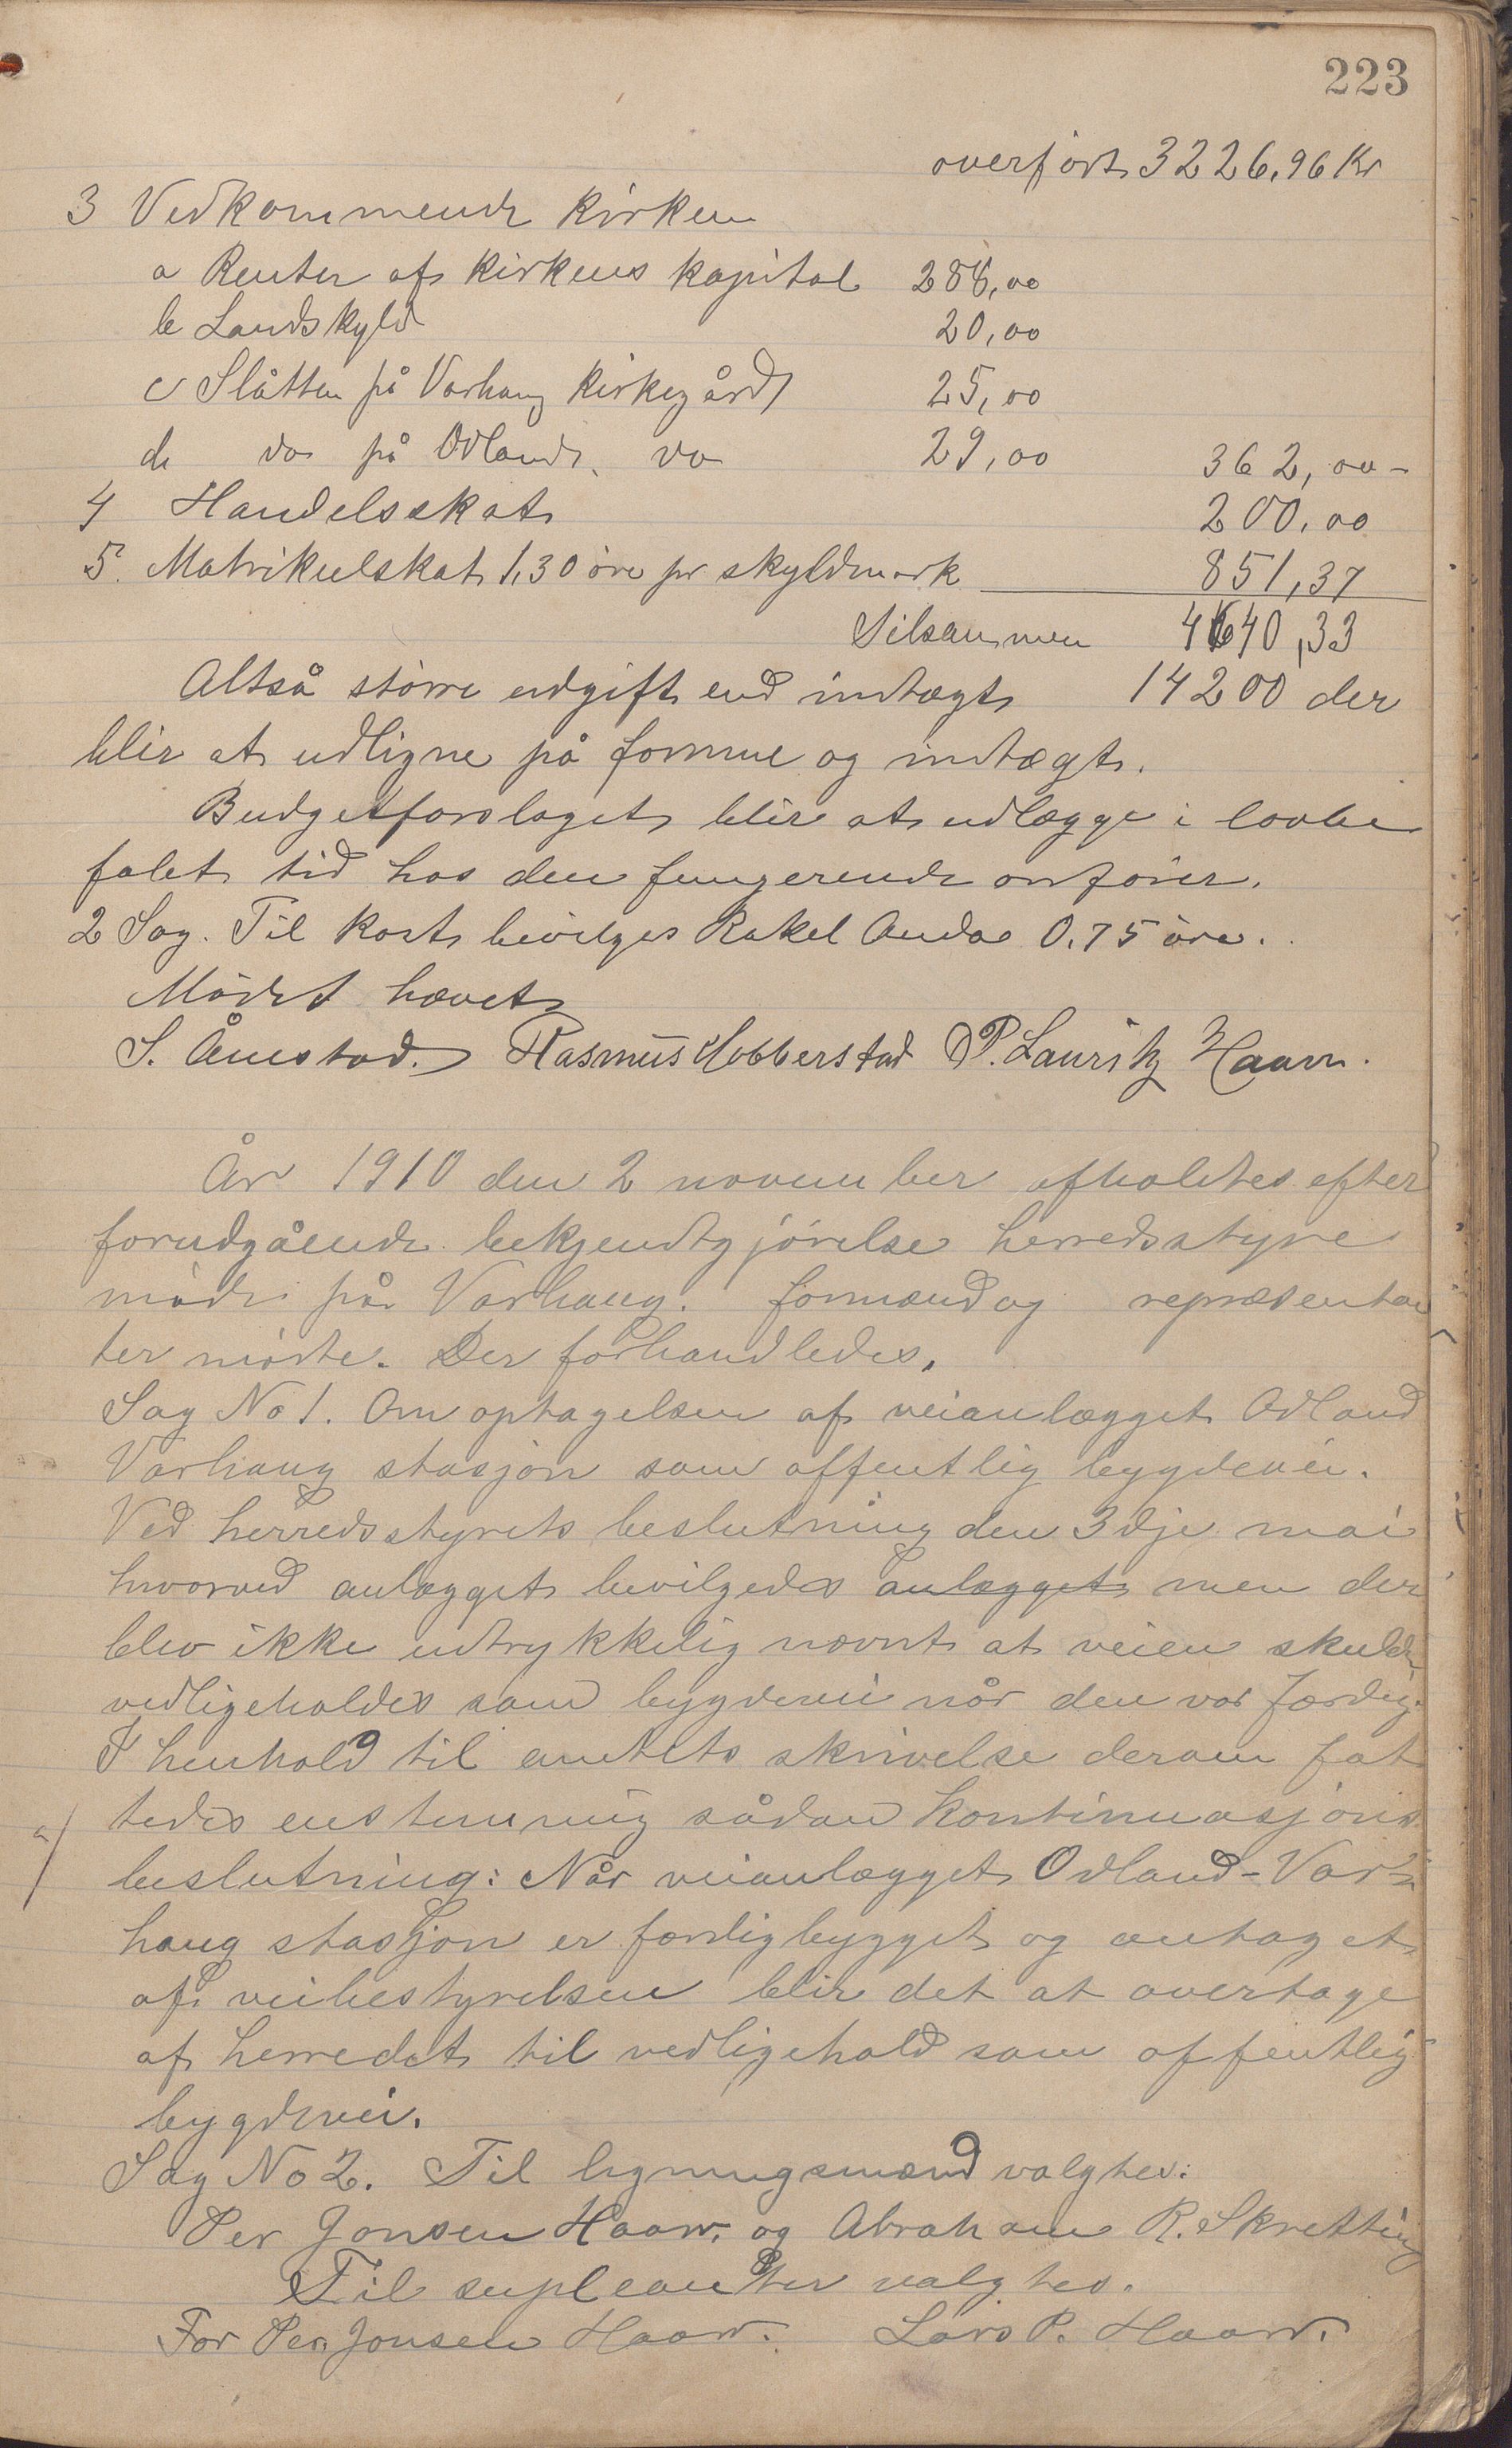 223
overført 3226,96 Kr
3 Vedkommende kirken
a Renter af kirkens kapital 288,00
b Landskyld 20,00
c Slåtten på Varhaug kirkegård 25,00
d do på Odland do 29,00 362,00 –
4 Handelsskat 200,00
5. Matrikulskat 1,30 øre pr skyldmark 851,37
Tilsammen 4640,33
Altså større udgift end indtægt 14200 der
blir at udligne på formue og indtægt.
Budgetforslaget blir at udlægge i lovbe
falet tid hos den fungerende ordfører.
2 Sag. Til kost bevilges Rakel Anda 0.75 øre.
Mødet hævet
S. Ånestad. Rasmus Hobberstad O P. Lauritz Haarr.
År 1910 den 2 november afholdtes efter
forudgående bekjendtgjørelse herredsstyre
møde på Varhaug. formænd og repræsentan
ter mødte. Der forhandledes.
Sag No 1. Om optagelsen af veianlægget Odland
Varhaug stasjon som offentlig bygdevei.
Ved herredsstyrets beslutning den 3dje mai
hvorved anlægget bevilgedes anlægget men der
blev ikke udtrykkelig nævnt at veien skulde
vedligeholdes som bygdevei når den var færdig.
I henhold til amtets skrivelse derom fat
tedes enstemmig sådan kontinuasjons
beslutning: Når veianlægget Odland-Var-
haug stasjon er færdigbygget og antaget
af veibestyrelsen blir det at overtage
af herredet til vedligehold som offentlig
bygdevei.
Sag No 2. Til ligningsmænd valgtes:
Per Jonsen Haarr. og Abraham R. Skretting
Til supleanter valgtes.
For Per Jonsen Haarr. Lars P. Haarr.